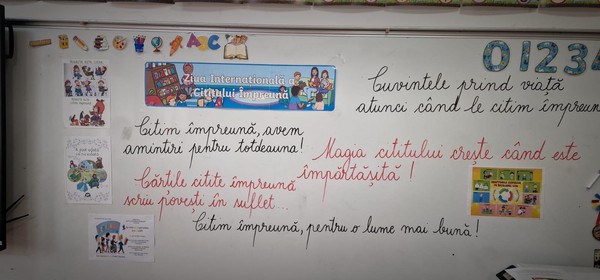 ABC
0123
Ziua Internațională a
Cititului Împreună
Cuvintele prind viață
atunci când le citim împreun
Citim împreună, avem
amintiri pentru totdeauna!
Magia cititului crește când este
împărtășită!
Cărțile citite împreună
scriu povești în suflet...
Citim împreună, pentru o lume mai bună!